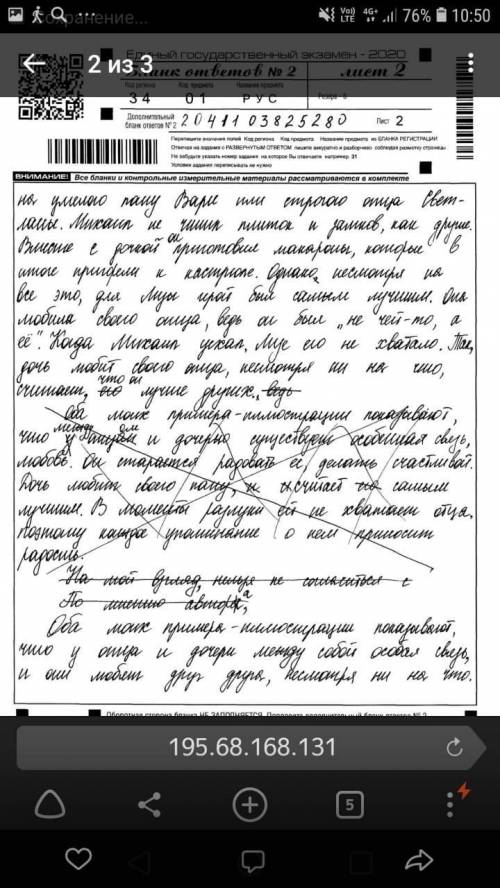 Сохранение...
Vo)) LTE 4G+ 76% 10:50
2 из 3
Единый государственный экзамен - 2020
Бланк ответов № 2 лист 2
Код региона Код предмета Название предмета
34 01 РУС
Резерв - 6
Дополнительный бланк ответов № 2 2041103825280 Лист 2
Перепишите значения полей Код региона Код предмета Название предмета из БЛАНКА РЕГИСТРАЦИИ
Отвечая на задания с РАЗВЕРНУТЫМ ОТВЕТОМ пишите аккуратно и разборчиво соблюдая разметку страницы
Не забудьте указать номер задания на которое Вы отвечаете например 31
Условия задания переписывать не нужно
ВНИМАНИЕ! Все бланки и контрольные измерительные материалы рассматриваются в комплекте
на умелого папу Вари или строгого отца Свет-
ланы. Михаил не чинил плиток и замков, как другие.
Вместе с дочкой он приготовил макароны, которые в
итоге приварели к кастрюле. Однако, несмотря на
все это, для Музы герой был самым лучшим. Она
любила своего отца, ведь он был „не чей-то, а
её". Когда Михаил уехал, Музе его не хватало. Так,
дочь любит своего отца, несмотря ни на что,
считает, его что он лучше других. ведь
Оба моих примера-иллюстрации показывают,
что у между отцом и дочерью существует особенная связь,
любовь. Он старается радовать её, делать счастливой.
Дочь любит своего папу, и считает его самым
лучшим. В моменты разлуки ей не хватает отца,
поэтому каждое упоминание о нем приносит
радость.
На мой взгляд, нельзя не согласиться с
По мнению автора,
Оба моих примера-иллюстрации показывают,
что у отца и дочери между собой особая связь,
и они любят друг друга, несмотря ни на что.
Оборотная сторона бланка НЕ ЗАПОЛНЯЕТСЯ.
195.68.168.131
5